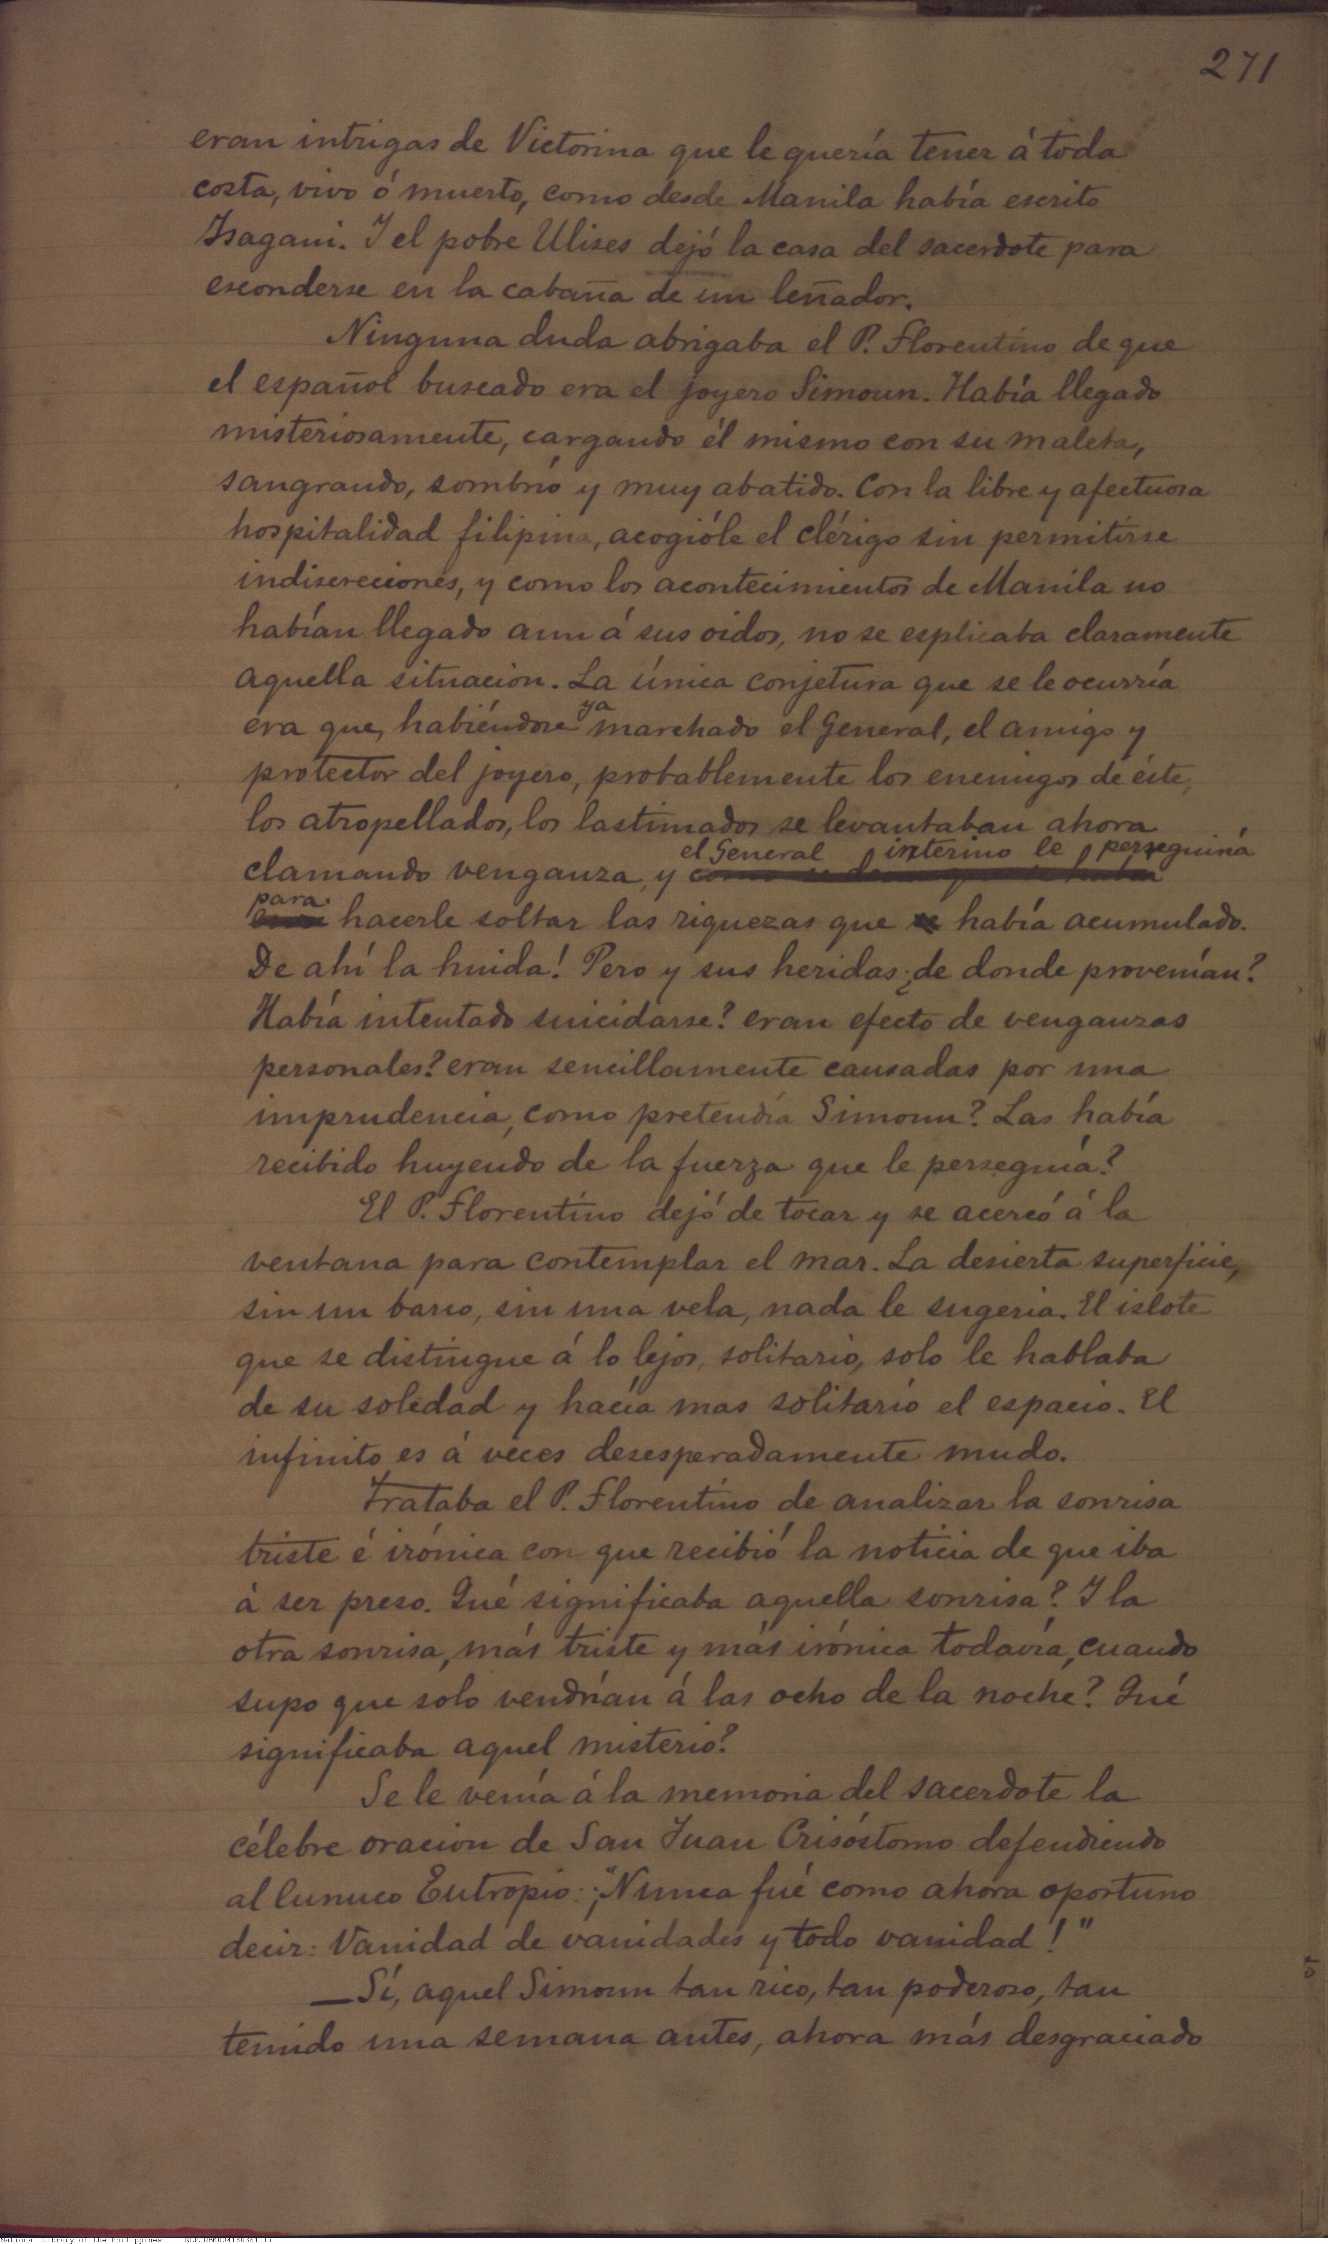 271
eran intrigas de Victorina que le quería tener á toda
costa, vivo ó muerto, como desde Manila había escrito
Isagani. I el pobre Ulises dejó la casa del sacerdote para
esconderse en la cabaña de un leñador.
Ninguna duda abrigaba el P. Florentino de que
el español buscado era el joyero Simoun. Había llegado
misteriosamente, cargando él mismo con su maleta,
sangrando, sombrío y muy abatido. Con la libre y afectuosa
hospitalidad filipina, acogióle el clérigo sin permitirse
indiscreciones, y como los acontecimientos de Manila no
habían llegado aun á sus oidos, no se esplicaba claramente
aquella situacion. La única conjetura que se le ocurría
era que, habiéndose ya marchado el General, el amigo y
protector del joyero, probablemente los enemigos de éste,
los atropellados, los lastimados se levantaban ahora
clamando venganza, y el General interino le perseguiría
para hacerle soltar las riquezas que había acumulado.
De ahí la huida! Pero y sus heridas ¿de donde provenían?
Había intentado suicidarse? eran efecto de venganzas
personales? eran sencillamente causadas por una
imprudencia, como pretendía Simoun? Las había
recibido huyendo de la fuerza que le perseguía?
El P. Florentino dejó de tocar y se acercó á la
ventana para contemplar el mar. La desierta superficie,
sin un barco, sin una vela, nada le sugeria. El islote
que se distingue á lo lejos, solitario, solo le hablaba
de su soledad y hacía mas solitario el espacio. El
infinito es á veces desesperadamente mudo.
Trataba el P. Florentino de analizar la sonrisa
triste é irónica con que recibió la noticia de que iba
á ser preso. Qué significaba aquella sonrisa? I la
otra sonrisa, más triste y más irónica todavía, cuando
supo que solo vendrían á las ocho de la noche? Qué
significaba aquel misterio?
Se le venía á la memoria del sacerdote la
célebre oracion de San Juan Crisóstomo defendiendo
al Eunuco Eutropio: "¡Nunca fué como ahora oportuno
decir: Vanidad de vanidades y todo vanidad!"
—Sí, aquel Simoun tan rico, tan poderoso, tan
temido una semana antes, ahora más desgraciado